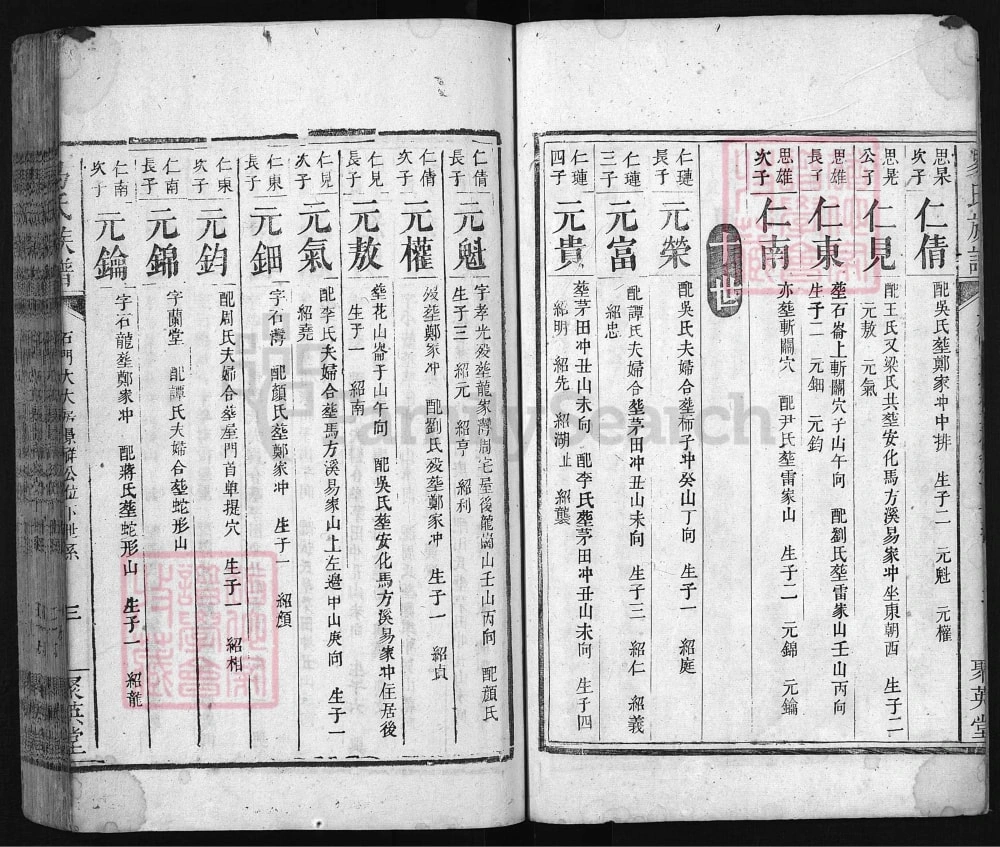 思杲次子 仁倩 配吳氏塟鄭家冲中排 生子二 元魁 元權
思晃公子 仁見 配王氏又梁氏共塟安化馬方溪易家冲坐東朝西 生子二 元敖 元氣
思雄長子 仁東 塟石崙上斬關穴子山午向 配劉氏塟雷家山壬山丙向 生子二 元鈿 元鈞
思雄次子 仁南 亦塟斬關穴 配尹氏塟雷家山 生子二 元錦 元鑰
十世
仁璉長子 元榮 配吳氏夫婦合塟柿子冲癸山丁向 生子一 紹庭
仁璉三子 元富 配譚氏夫婦合塟茅田冲丑山未向 生子三 紹仁 紹義 紹忠
仁璉四子 元貴 塟茅田冲丑山未向 配李氏塟茅田冲丑山未向 生子四 紹明 紹先 紹湖止 紹襲
聚英堂
仁倩長子 元魁 字孝光歿塟龍家灣周宅屋後龍崗山壬山丙向 配顔氏 生子三 紹元 紹亨 紹利
仁倩次子 元權 歿塟鄭家冲 配劉氏歿塟鄭家冲 生子一 紹貞
仁見長子 元敖 塟花山崙子山午向 配吳氏塟安化馬方溪易家冲住居後 生子一 紹南
仁見次子 元氣 配李氏夫婦合塟馬方溪易家山上左邊甲山庚向 生子一 紹堯
仁東長子 元鈿 字石灣 配顔氏塟鄭家冲 生子一 紹顏
仁東次子 元鈞 配周氏夫婦合塟屋門首單提穴 生子一 紹相
仁南長子 元錦 字蘭堂 配譚氏夫婦合塟蛇形山
仁南次子 元鑰 字石龍塟鄭家冲 配蔣氏塟蛇形山 生子一 紹龍
氏族譜 石門大大房景祥公位下世系 三 聚英堂
FamilySearch